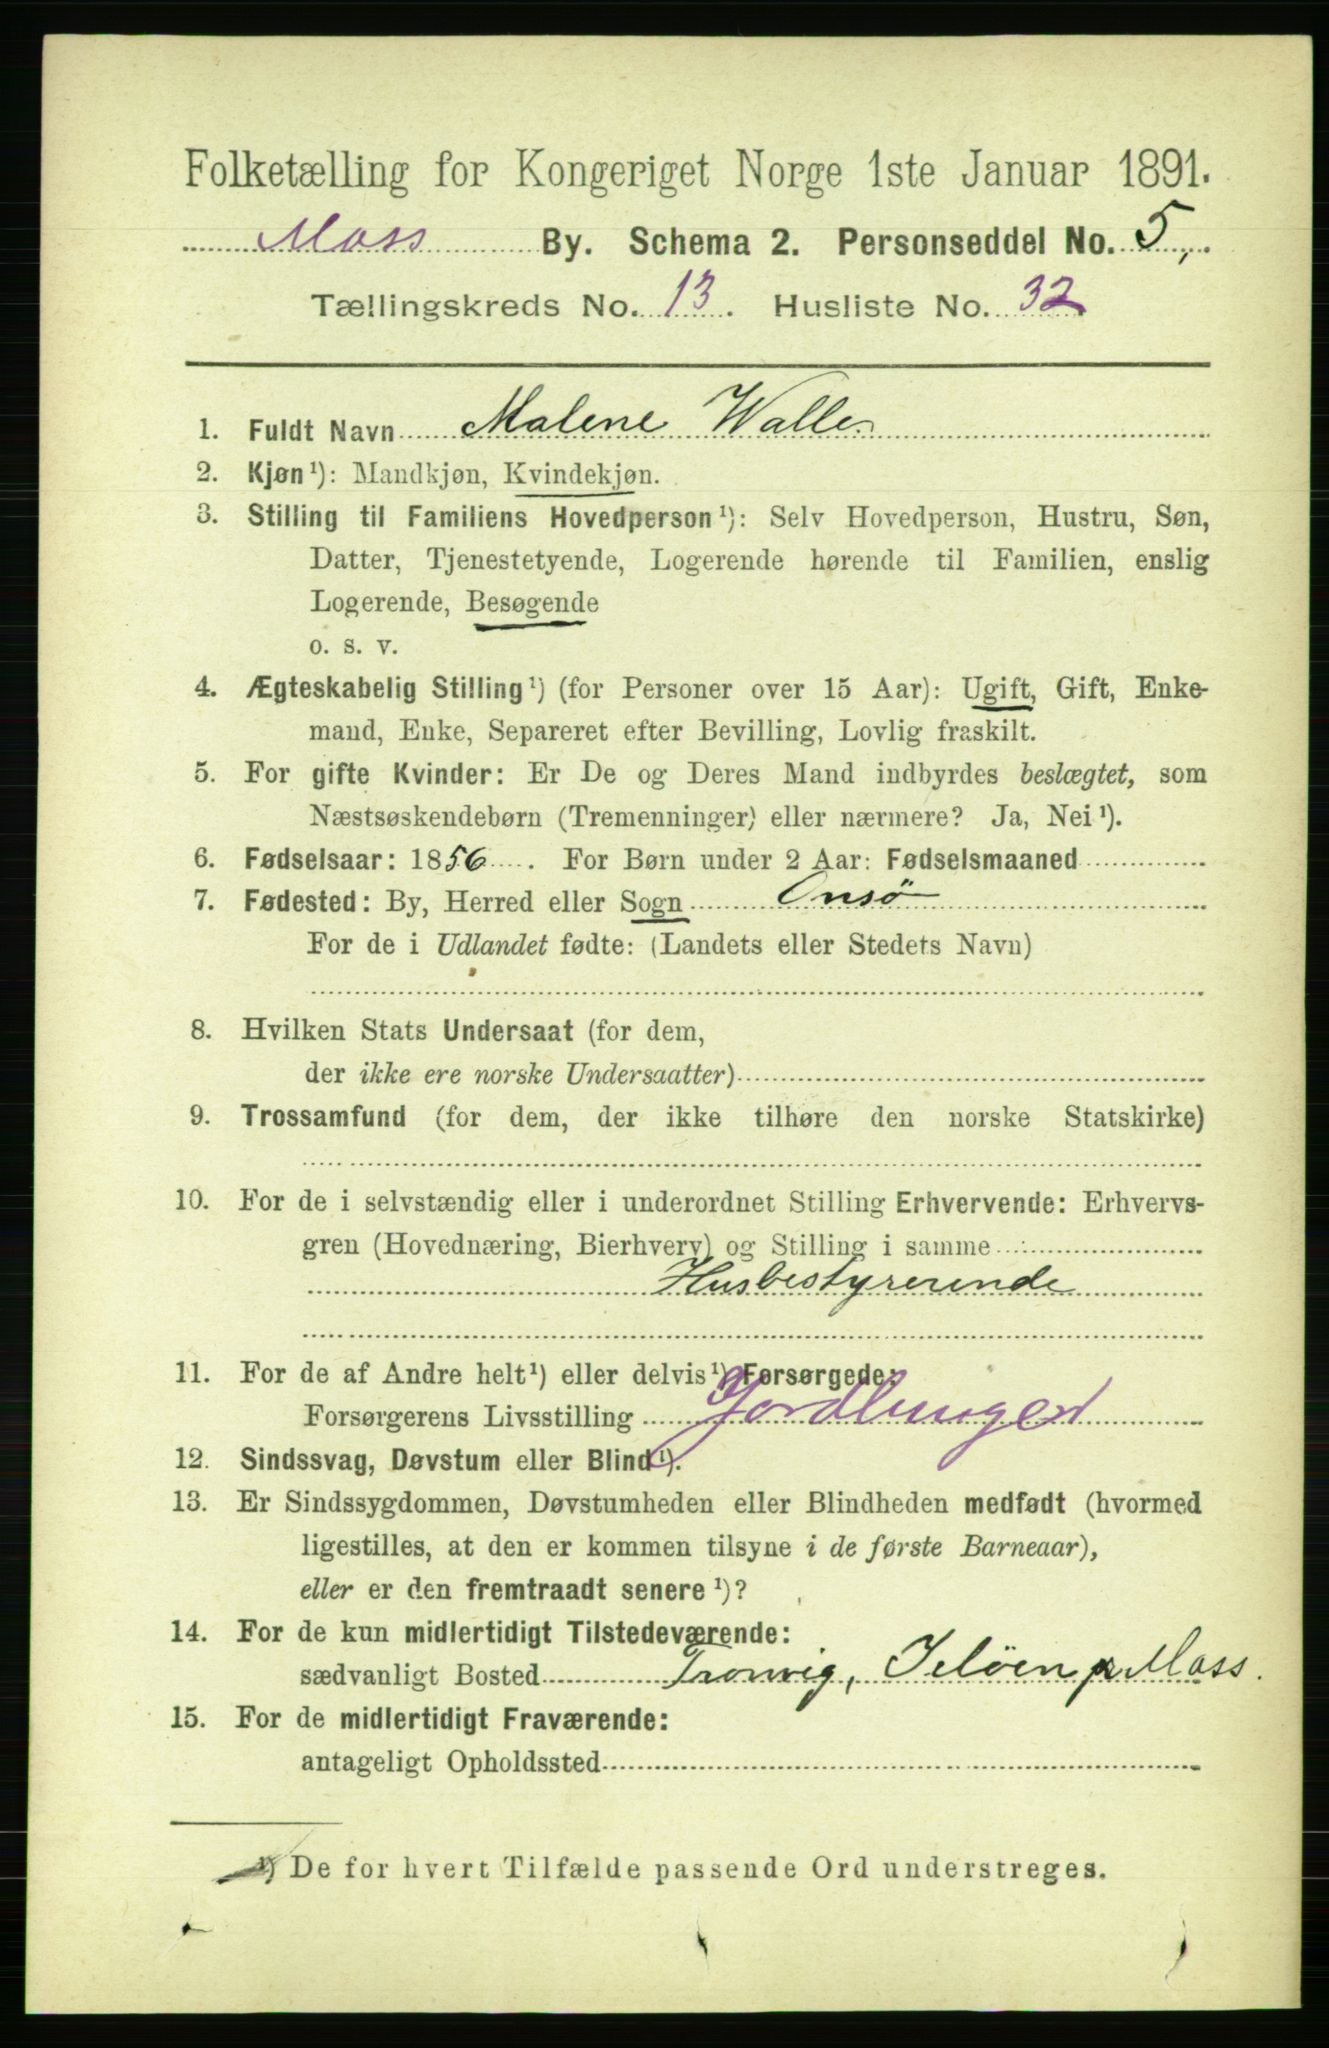 Folketælling for Kongeriget Norge 1ste Januar 1891.
Moss By. Schema 2. Personseddel No. 5,
Tællingskreds No. 13. Husliste No. 32
1. Fuldt Navn Malene Walle
2. Kjøn¹): Mandkjøn, Kvindekjøn.
3. Stilling til Familiens Hovedperson¹): Selv Hovedperson, Hustru, Søn,
Datter, Tjenestetyende, Logerende hørende til Familien, enslig
Logerende, Besøgende
o. s. v.
4. Ægteskabelig Stilling¹) (for Personer over 15 Aar): Ugift, Gift, Enke-
mand, Enke, Separeret efter Bevilling, Lovlig fraskilt.
5. For gifte Kvinder: Er De og Deres Mand indbyrdes beslægtet, som
Næstsøskendebørn (Tremenninger) eller nærmere? Ja, Nei¹).
6. Fødselsaar: 1856. For Børn under 2 Aar: Fødselsmaaned
7. Fødested: By, Herred eller Sogn Onsö
For de i Udlandet fødte: (Landets eller Stedets Navn)
8. Hvilken Stats Undersaat (for dem,
der ikke ere norske Undersaatter)
9. Trossamfund (for dem, der ikke tilhøre den norske Statskirke)
10. For de i selvstændig eller i underordnet Stilling Erhvervende: Erhvervs-
gren (Hovednæring, Bierhverv) og Stilling i samme
Husbestyrerinde
11. For de af Andre helt¹) eller delvis¹) Forsørgede:
Forsørgerens Livsstilling
12. Sindssvag, Døvstum eller Blind¹).
13. Er Sindssygdommen, Døvstumheden eller Blindheden medfødt (hvormed
ligestilles, at den er kommen tilsyne i de første Barneaar),
eller er den fremtraadt senere¹)?
14. For de kun midlertidigt Tilstedeværende:
sædvanligt Bosted Tronvig, Jelöen pr Moss.
15. For de midlertidigt Fraværende:
antageligt Opholdssted
¹) De for hvert Tilfælde passende Ord understreges.